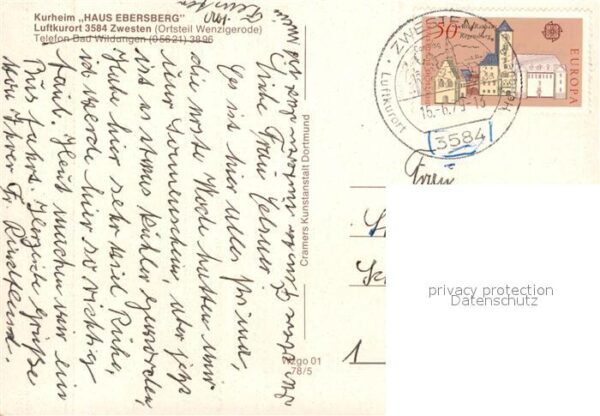 Kurheim „HAUS EBERSBERG"
Luftkurort 3584 Zwesten (Ortsteil Wenzigerode)
Telefon Bad Wildungen (0 56 21) 38 96
Liebe Frau
Es ist hier alles prima,
die erste Woche hatten wir
nur Sonnenschein, aber jetzt
ist es etwas kühler geworden,
Habe hier sehr viel Ruhe,
ich werde hier so richtig
faul. Heut machen wir ein
Busfahrt. Herzliche Grüße
von Ihrer Fr.
Cramers Kunstanstalt Dortmund
Wzgo 01
78/5
30
EUROPA
ZWESTEN
Luftkurort
15.-6.79-18
3584
Frau
1
privacy protection
Datenschutz